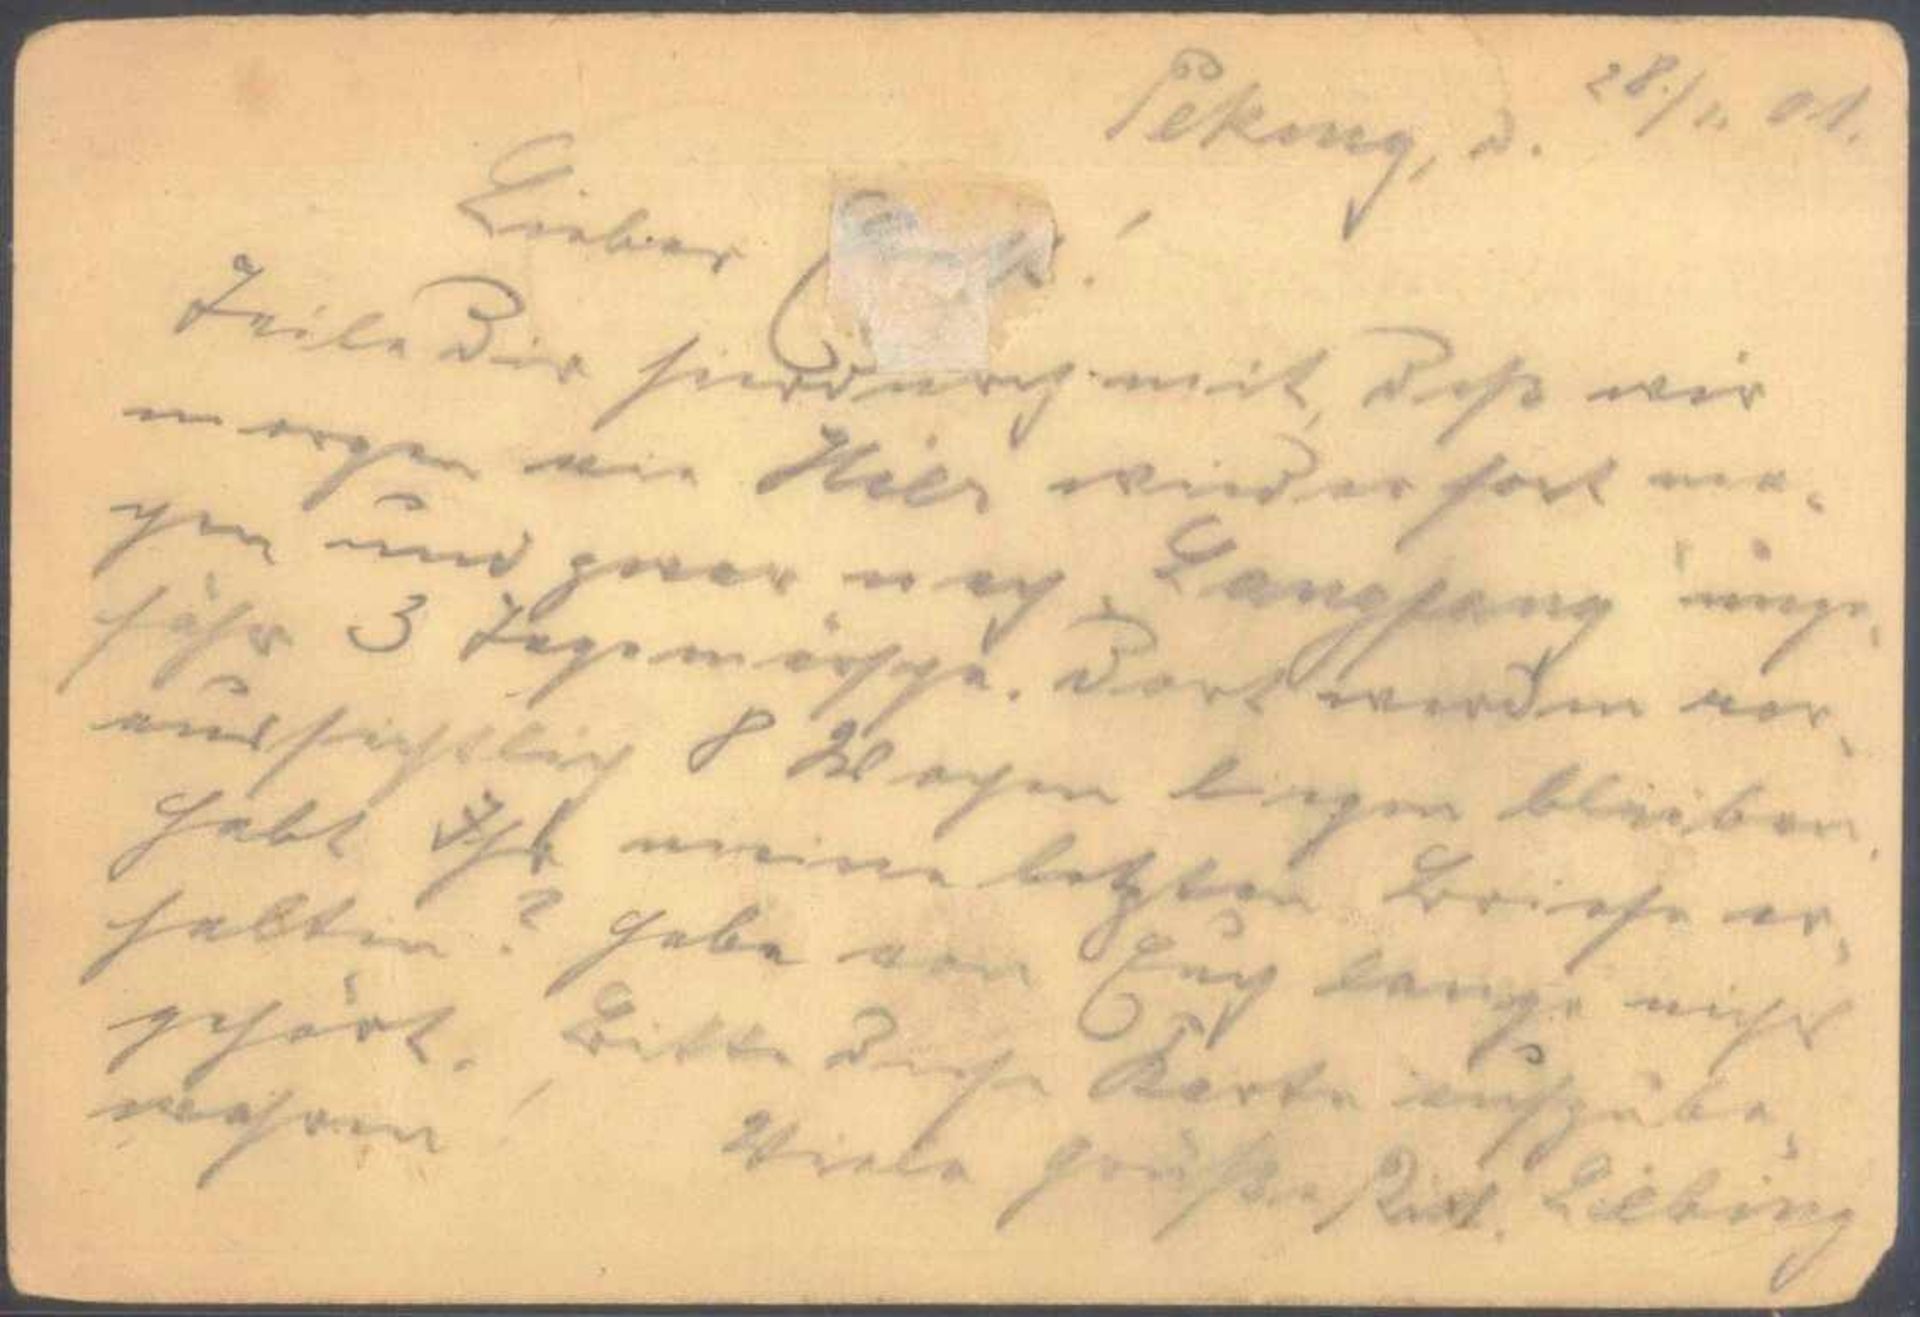 Peking, d. 28./1. 01.
Lieber
Teile Dir hierdurch mit, daß wir
morgen von hier wieder fort ma-
chen und zwar nach Langfang unge-
fähr 3 Tagemärsche. Dort werden vor-
aussichtlich 8 Wochen liegen bleiben.
Habt Ihr meine letzten Briefe er-
halten? Habe von Euch lange nichts
gehört. Bitte diese Karte aufzube-
wahren! Viele Grüße Rich. Liebing